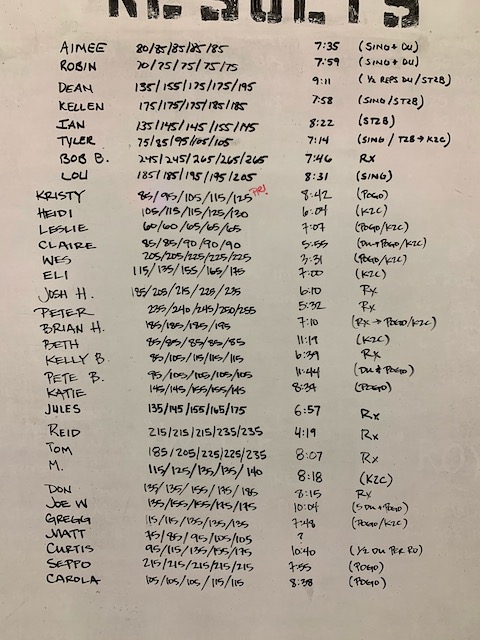 RESULTS
AIMEE 80/85/85/85/85 7:35 (SING + DU)
ROBIN 70/75/75/75/75 7:59 (SING + DU)
DEAN 135/155/175/175/195 9:11 (1/2 REPS DU/ST2B)
KELLEN 175/175/175/185/185 7:58 (SING/ST2B)
IAN 135/145/145/155/145 8:22 (ST2B)
TYLER 75/85/95/105/105 7:14 (SING / T2B → K2C)
BOB B. 245/245/265/265/265 7:46 RX
LOU 185/185/195/195/205 8:31 (SING)
KRISTY 85/95/105/115/125 PR! 8:42 (POGO)
HEIDI 105/115/115/125/120 6:04 (K2C)
LESLIE 60/60/65/65/65 7:07 (POGO/K2C)
CLAIRE 85/85/90/90/90 5:55 (DU+POGO/K2C)
WES 205/205/225/225/225 3:31 (POGO/K2C)
ELI 115/135/155/165/175 7:00 (K2C)
JOSH H. 185/205/215/225/235 6:10 Rx
PETER 235/240/245/250/255 5:32 Rx
BRIAN H. 185/185/195/195 7:10 (Rx → POGO/K2C)
BETH 85/85/85/85/85 11:19 (K2C)
KELLY B. 85/105/115/115/115 6:39 Rx
PETE B. 95/105/105/105/105 11:44 (DU & POGO)
KATIE 145/145/155/155/145 8:34 (POGO)
JULES 135/145/155/165/175 6:57 Rx
REID 215/215/215/235/235 4:19 Rx
TOM 185/205/225/225/235 8:07 Rx
M. 115/125/135/135/140 8:18 (K2C)
DON 135/135/155/175/185 8:15 Rx
JOE W 135/155/155/175/175 10:04 (SDU+POGO)
GREGG 115/115/135/135/135 7:48 (POGO/K2C)
MATT 75/85/95/105/105 ?
CURTIS 95/115/135/155/175 10:40 (1/2 DU PER RD)
SEPPO 215/215/215/215/215 7:55 (POGO)
CAROLA 105/105/105/115/115 8:38 (POGO)